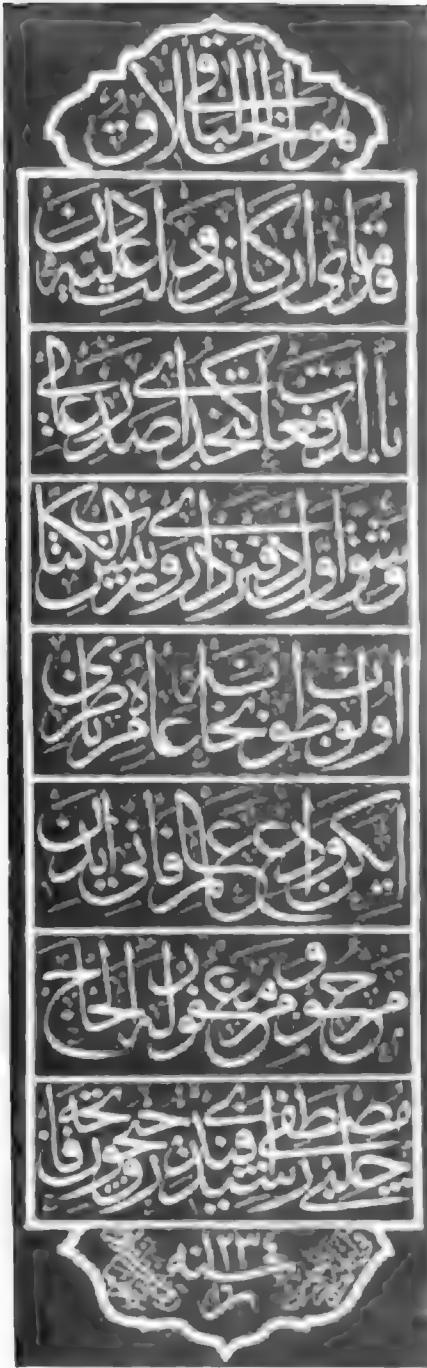 هو الخلاق الباقی
قدمای ارکان دولت علیه دن
بالدفعات کتخدای صدر عالی
و شق اول دفترداری و رئیس الکتاب
اولوب طوپخانه عامره ناظری
ایکن وداع عالم فانی ایدن
مرحوم و مغفور له الحاج
چلبی مصطفی رشید افندی روحیچون فاتحه
سنه ١٢٣٤